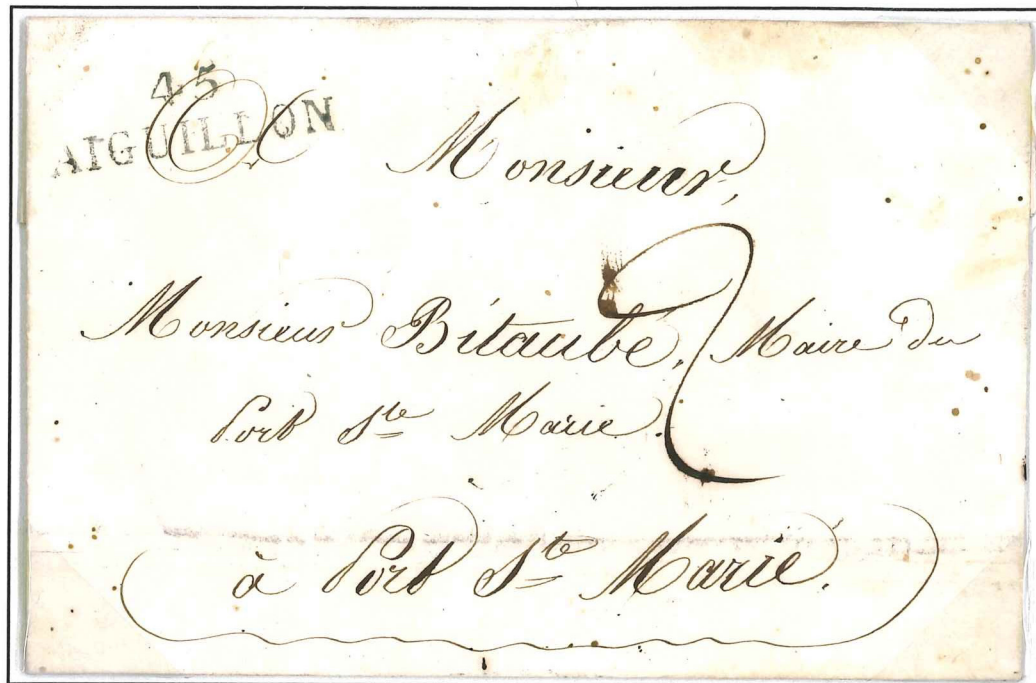 45
AIGUILLON
A Monsieur,
2
Monsieur Bitaubé, Maire du
Port Ste Marie.
à Port Ste Marie.